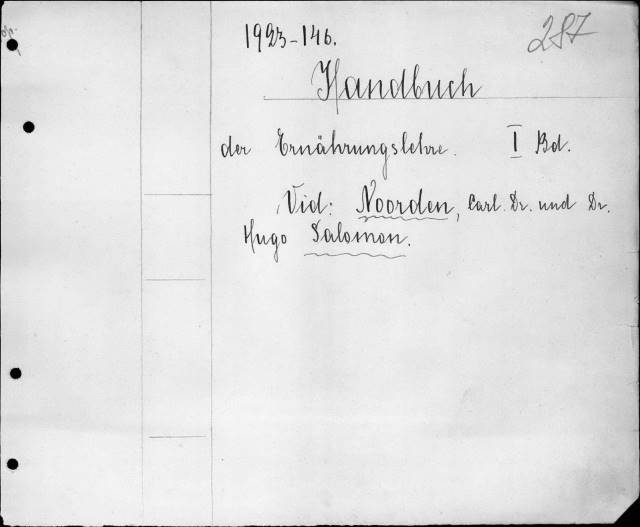 287
1923-146.
Handbuch
der Ernährungslehre. I Bd.
Vid: Noorden, Carl. Dr. und Dr.
Hugo Salomon.